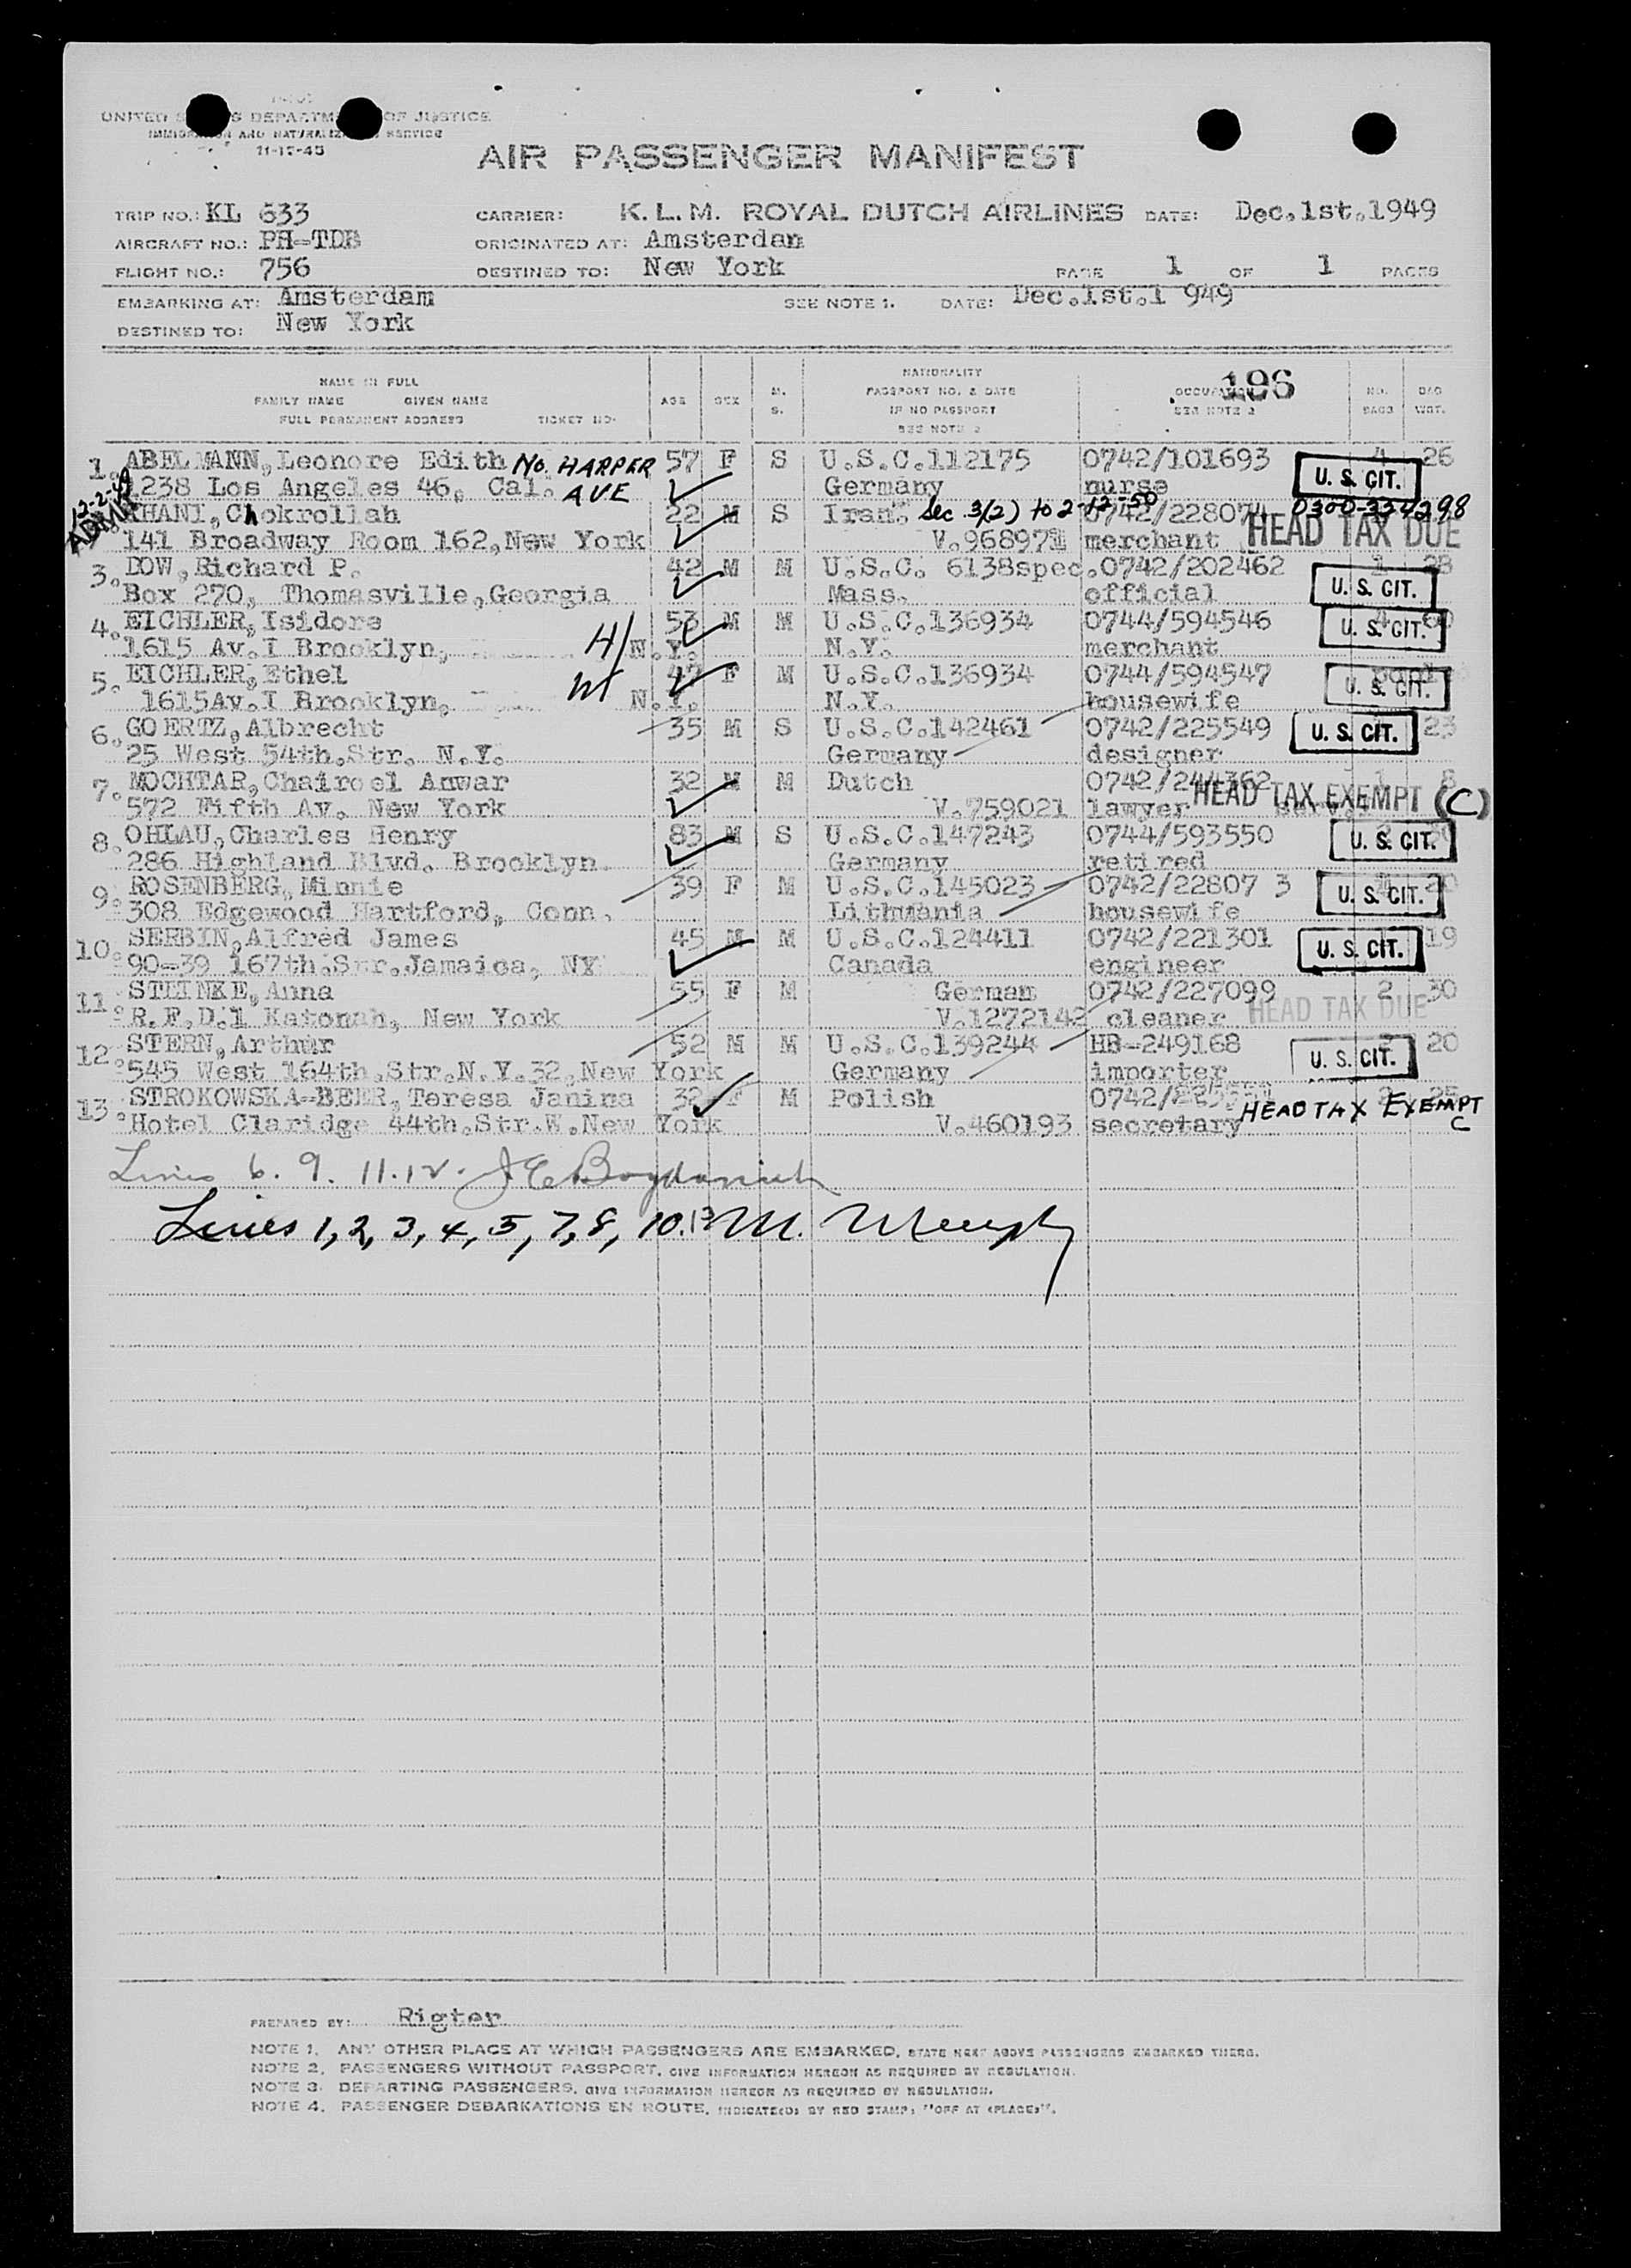 UNITED S S DEPARTM OF JUSTICE
IMMIGRATION AND NATURALIZ SERVICE
11-17-45
AIR PASSENGER MANIFEST
TRIP NO.: KL 633 CARRIER: K.L.M. ROYAL DUTCH AIRLINES DATE: Dec.1st.1949
AIRCRAFT NO.: PH-TDB ORIGINATED AT: Amsterdam
FLIGHT NO.: 756 DESTINED TO: New York PAGE 1 OF 1 PAGES
EMBARKING AT: Amsterdam SEE NOTE 1. DATE: Dec.1st.1 949
DESTINED TO: New York
NAME IN FULL
FAMILY NAME GIVEN NAME
FULL PERMANENT ADDRESS TICKET NO.
AGE SEX M. S.
NATIONALITY
PASSPORT NO. & DATE
IF NO PASSPORT
SEE NOTE 2
OCCUPATION 196
SEE NOTE 2
NO. BAGS BAG WGT.
1. ABELMANN, Leonore Edith No. HARPER 57 F S U.S.C.112175 0742/101693 4 26
1238 Los Angeles 46, Cal. AVE Germany nurse U.S. CIT.
12-2-49 ADM KHANI, Chokrollah 22 M S Iran. Sec 3(2) to 2-12-50 0742/228074 0300-334298
141 Broadway Room 162,New York V.968971 merchant HEAD TAX DUE
3. DOW, Richard P. 42 M M U.S.C. 6138spec.0742/202462 1 28
Box 270, Thomasville,Georgia Mass. official U.S. CIT.
4. EICHLER, Isidore 53 M M U.S.C.136934 0744/594546 4 60 U.S. CIT.
1615 Av.I Brooklyn, H/ N.Y. N.Y. merchant
5. EICHLER, Ethel W 47 F M U.S.C.136934 0744/594547
1615Av.I Brooklyn, N.Y. N.Y. housewife U.S. CIT.
6. GOERTZ, Albrecht 35 M S U.S.C.142461 0742/225549 U.S. CIT. 23
25 West 54th.Str. N.Y. Germany designer
7. MOCHTAR, Chairoel Anwar 32 M M Dutch 0742/244362 1 8
572 Fifth Av. New York V.759021 lawyer HEAD TAX EXEMPT (C)
8. OHLAU, Charles Henry 83 M S U.S.C.147243 0744/593550 U.S. CIT.
286 Highland Blvd. Brooklyn. Germany retired
9. ROSENBERG, Minnie 39 F M U.S.C.145023 0742/22807 3 U.S. CIT.
308 Edgewood Hartford, Conn. Lithuania housewife
10. SERBIN, Alfred James 45 M M U.S.C.124411 0742/221301 U.S. CIT. 19
90-39 167th.Str.Jamaica, NY Canada engineer
11. STEINKE, Anna 55 F M German 0742/227099 2 30
R.F.D.1 Katonah, New York V.1272142 cleaner HEAD TAX DUE
12. STERN, Arthur 52 M M U.S.C.139244 HB-249168 U.S. CIT. 20
545 West 164th.Str.N.Y.32,New York Germany importer
13. STROKOWSKA-BEER, Teresa Janina 32 F M Polish 0742/ 2 25
Hotel Claridge 44th.Str.W.New York V.460193 secretary HEAD TAX EXEMPT C
Lines 6. 9. 11.12. J E Bogdanich
Lines 1, 2, 3, 4, 5, 7, 8, 10.13 M. Murphy
PREPARED BY: Rigter
NOTE 1. ANY OTHER PLACE AT WHICH PASSENGERS ARE EMBARKED, STATE NEXT ABOVE PASSENGERS EMBARKED THERE.
NOTE 2. PASSENGERS WITHOUT PASSPORT, GIVE INFORMATION HEREON AS REQUIRED BY REGULATION.
NOTE 3. DEPARTING PASSENGERS, GIVE INFORMATION HEREON AS REQUIRED BY REGULATION.
NOTE 4. PASSENGER DEBARKATIONS EN ROUTE, INDICATE(D) BY RED STAMP: "OFF AT (PLACE)".